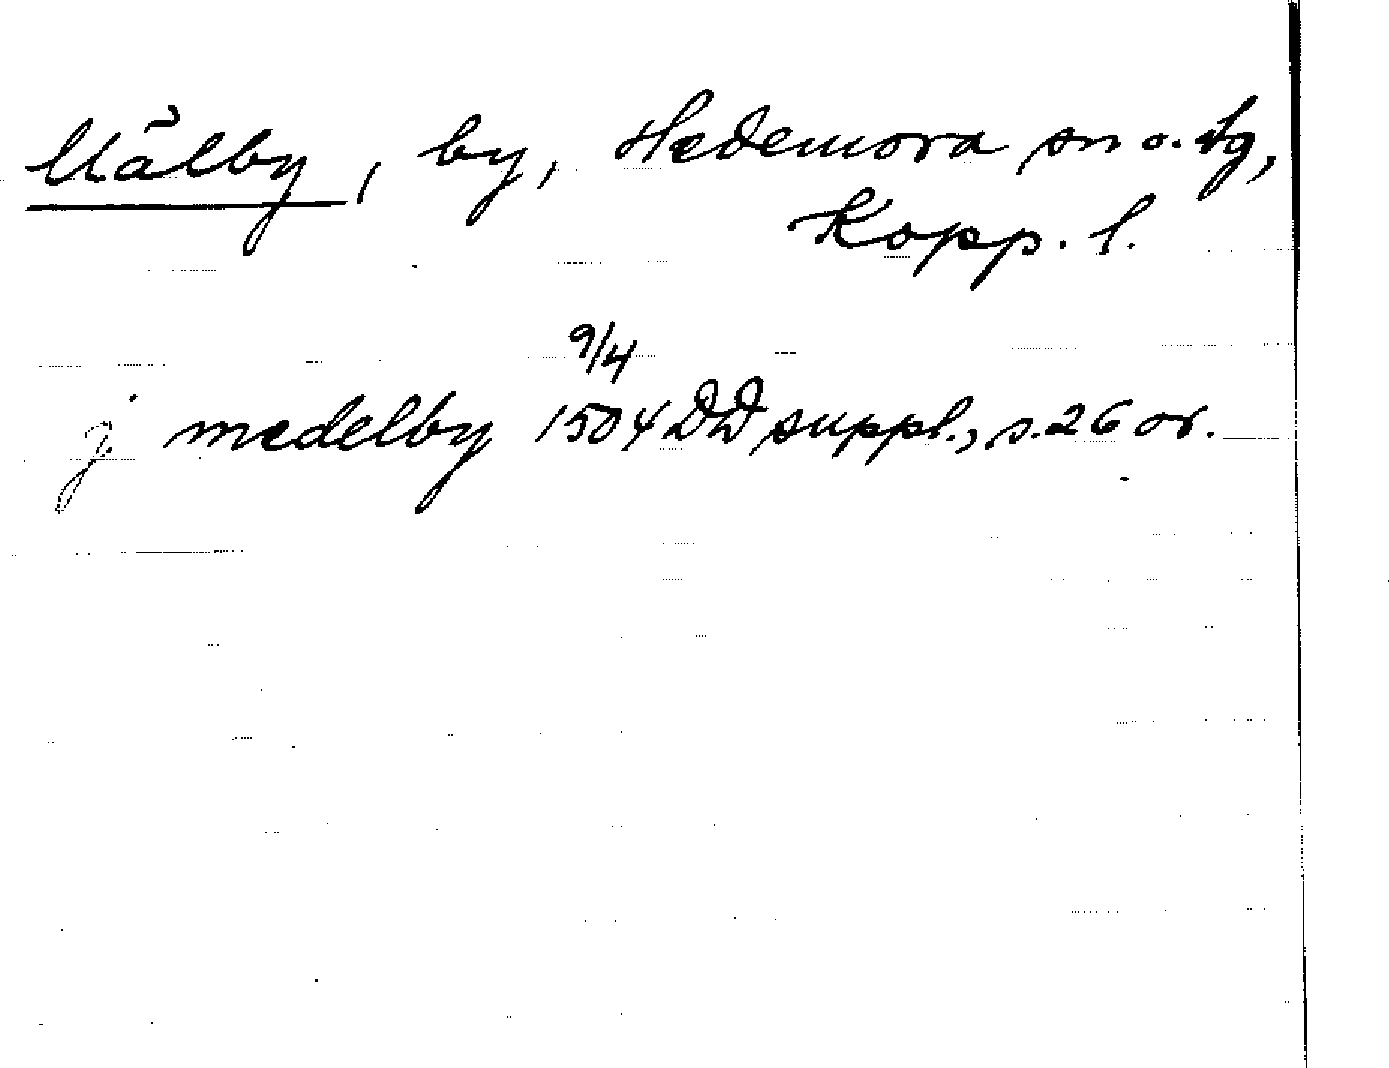 Målby, by, Hedemora sn o. tg,
Kopp. l.
9/4
j medelby 1504 DD suppl., s. 26 or.